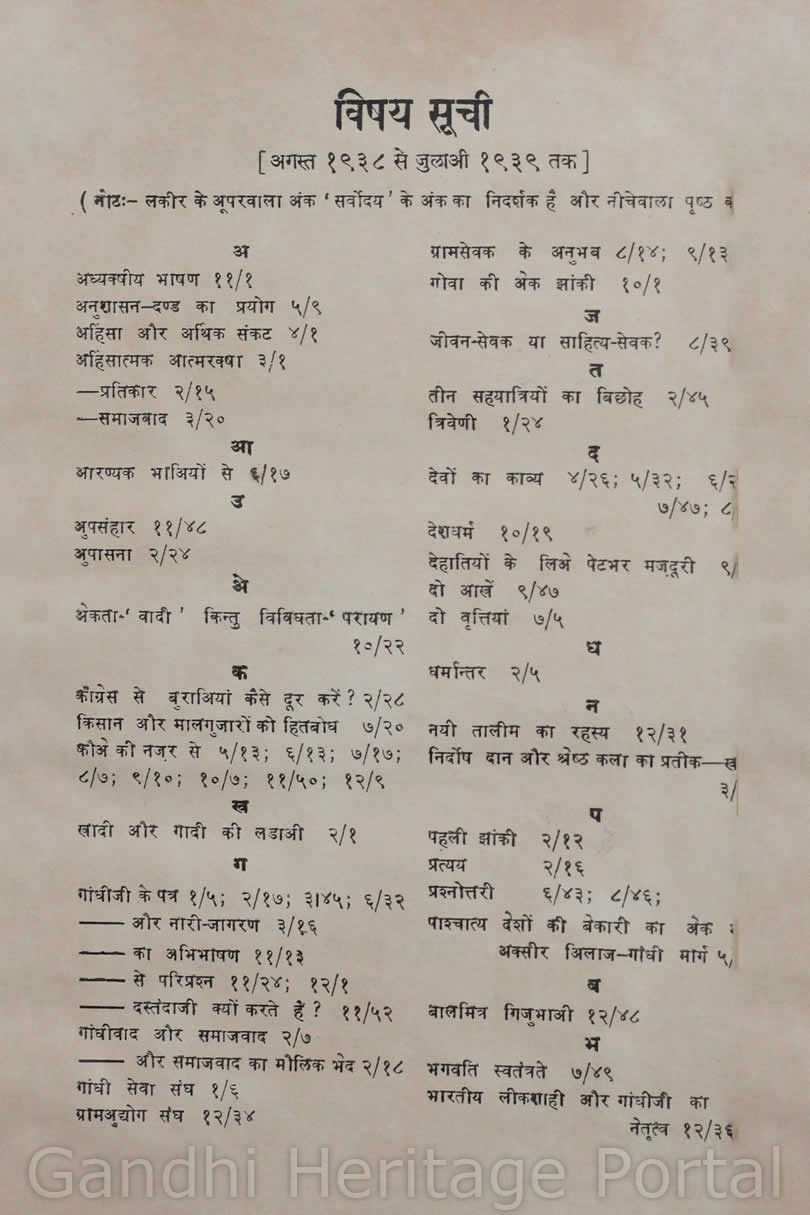 विषय सूची
[ अगस्त १९३८ से जुलाओ १९३९ तक ]
( नोटः— लकीर के अूपरवाला अंक ‘ सर्वोदय ’ के अंक का निदर्शक है और नीचेवाला पृष्ठ
अ
अध्यक्षीय भाषण ११/१
अनुशासन—दण्ड का प्रयोग ५/९
अहिंसा और अथिक संकट ४/१
अहिंसात्मक आत्मरक्षा ३/१
—प्रतिकार २/१५
—समाजवाद ३/२०
आ
आरण्यक भाअियों से ६/१७
उ
अुपसंहार ११/४८
अुपासना २/२४
अे
अेकता-‘ वादी ’ किन्तु विविधता-‘ परायण ’
१०/२२
क
कांग्रेस से बुराअियां कैसे दूर करें ? २/२८
किसान और मालगुजारों को हितबोध ७/२०
कौअे की नज़र से ५/१३; ६/१३; ७/१७;
८/७; ९/१०; १०/७; ११/५०; १२/९
ख
खादी और गादी की लडाओ २/१
ग
गांधीजी के पत्र १/५; २/१७; ३।४५; ६/३२
—— और नारी-जागरण ३/१६
—— का अभिभाषण ११/१३
—— से परिप्रश्न ११/२४; १२/१
—— दस्तंदाजी क्यों करते हैं ? ११/५२
गांधीवाद और समाजवाद २/७
—— और समाजवाद का मौलिक भेद २/१८
गांधी सेवा संघ १/६
ग्रामअुद्योग संघ १२/३४
ग्रामसेवक के अनुभव ८/१४; ९/१३
गोवा की अेक झांकी १०/१
ज
जीवन-सेवक या साहित्य-सेवक? ८/३९
त
तीन सहयात्रियों का बिछोह २/४५
त्रिवेणी १/२४
द
देवों का काव्य ४/२६; ५/३२; ६/
७/४७; ८/
देशधर्म १०/१९
देहातियों के लिअे पेटभर मज़दूरी ९/
दो आखें ९/४७
दो वृत्तियां ७/५
ध
धर्मान्तर २/५
न
नयी तालीम का रहस्य १२/३१
निर्दोष दान और श्रेष्ठ कला का प्रतीक—
३/
प
पहली झांकी २/१२
प्रत्यय २/१६
प्रश्नोत्तरी ६/४३; ८/४६;
पाश्चात्य देशों की बेकारी का अेक
अक्सीर अिलाज—गांधी मार्ग ५/
ब
बालमित्र गिजुभाओ १२/४८
भ
भगवति स्वतंत्रते ७/४९
भारतीय लोकशाही और गांधीजी का
नेतृत्व १२/३६
Gandhi Heritage Portal